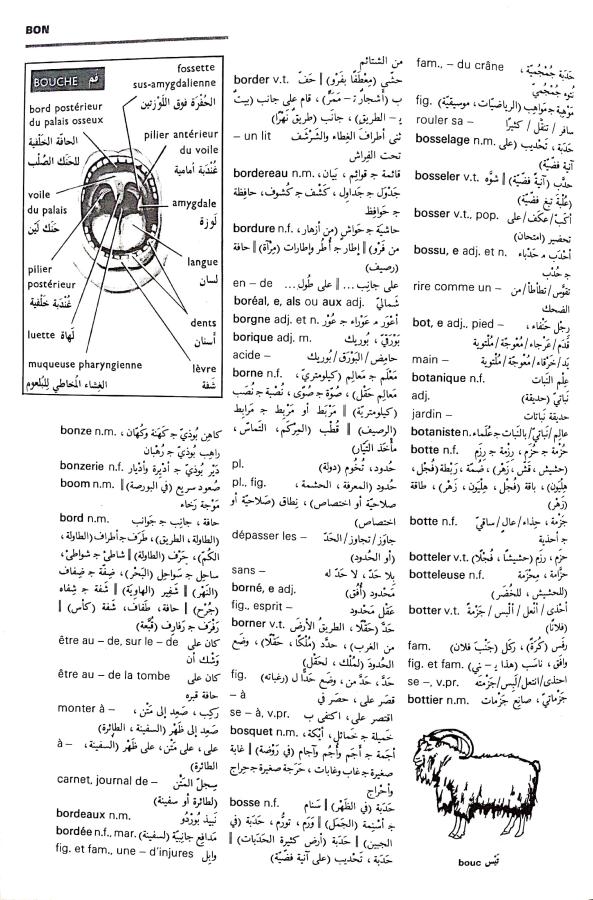 BON
BOUCHE فم
fossette
sus-amygdalienne
الحُفْرَة فوق اللَّوْزَتين
bord postérieur
du palais osseux
الحافّة الخَلْفية
للحَنَك الصُّلْب
pilier antérieur
du voile
عُنْدَبَة أمامية
voile
du palais
حَنَك لَيِّن
amygdale
لَوزَة
pilier
postérieur
عُنْدَبَة خَلْفية
langue
لسان
luette لَهَاة
dents
أسنان
muqueuse pharyngienne
الغِشاء المُخاطي لِلبُلعوم
lèvre
شَفة
bonze n.m. كاهِن بُوذيّ ج كَهَنة وكُهّان،
راهِب بُوذيّ ج رُهْبان
bonzerie n.f. دَيْر بُوذيّ ج أدْيِرة وأدْيار
boom n.m. صُعود سريع (في البورصة) ||
مَوْجة رَخاء
bord n.m. حافة، جانِب ج جَوانِب
(الطاولة، الطريق)، طَرَف ج أطراف (الطاولة،
الكُمّ)، حَرْف (الطاولة) || شاطئ ج شَواطئ،
ساحِل ج سَواحِل (البَحْر)، ضِفّة ج ضِفاف
(النَهْر) || شَفير (الهاوِيَة) || شَفة ج شِفاه
(جُرْح) || حافة، طَفاف، شَفة (كأس) ||
رَفْرَف ج رَفارِف (قُبَّعة)
être au – de, sur le – de كان على
وَشْك أن
être au – de la tombe كان على
حافة قبره
monter à – رَكِب، صَعِد إلى مَتْن،
صَعِد إلى ظَهْر (السفينة، الطائرة)
à – على، على مَتْن، على ظَهْر (السفينة،
الطائرة)
carnet, journal de – سِجلّ المَتْن
(لطائرة أو سفينة)
bordeaux n.m. نَبيذ بُورْدُو
bordée n.f., mar. مَدافِع جانِبيّة (لسفينة)
fig. et fam., une – d'injures وابِل
من الشتائم
border v.t. حشّى (مِعْطَفًا بفَرْو) || حَفّ
ب (أشجارٌ – مَمَرًّا)، قام على جانب (بيتٌ
يـ – الطريق)، جانَب (طريقٌ نَهْرًا)
– un lit ثنى أطراف الغِطاء والشَرْشَف
تحت الفِراش
bordereau n.m. قائمة ج قوائم، بَيان،
جَدْوَل ج جداوِل، كَشْف ج كُشوف، حافِظة
ج حَوافِظ
bordure n.f. حاشيَة ج حَواشٍ (من أزهار،
من فَرْو) || إطار ج أُطُر وإطارات (مِرْآة) || حافة
(رصيف)
en – de على جانِب... || على طُول...
boréal, e, als ou aux adj. شَماليّ
borgne adj. et n. أعْوَر م عَوْراء ج عُوْر
borique adj. m. بَوْرَقيّ، بُوريك
acide – حامِض/البَوْرَق/بُوريك
borne n.f. مَعْلَم ج مَعالِم (كيلومتريّ،
مَعالِم حَقْل)، صُوّة ج صُوًى، نُصْبة ج نُصَب
(كيلومتريّة) || مَرْبَط أو مَرْبِط ج مَرابِط
(الرصيف) || قُطْب (المِركَم، التَماسّ،
مأخَذ التيّار)
pl. حُدود، تُخُوم (دولة)
pl., fig. حُدود (المعرفة، الحشمة،
صلاحيّة أو اختصاص)، نِطاق (صَلاحيّة أو
اختصاص)
dépasser les – جاوَز/تجاوَز/الحَدّ
(أو الحُدود)
sans – بِلا حَدّ، لا حَدّ له
borné, e adj. مَحْدود (أُفُق)
fig., esprit – عَقْل مَحْدود
borner v.t. حَدَّ (حَقْلًا، الطريقُ الأرضَ
من الغرب)، حدَّد (مُلْكًا، حَقْلًا)، وضَع
الحُدودَ (لمُلْك، لحَقْل)
fig. حَدَّ، حَدَّ من، وضَع حَدًّا لـ (رغباته)
– à قصَر على، حصَر في
se – à, v.pr. اقتصر على، اكتفى ب
bosquet n.m. خَميلة ج خَمائل، أيْكة،
أجَمة ج أُجَم وأُجُم وآجام (في رَوْضة) || غابة
صغيرة ج غاب وغابات، حَرَجة صغيرة ج حِراج
وأحْراج
bosse n.f. حَدَبة (في الظَهْر) || سَنام
ج أسْنِمة (الجَمَل) || وَرَم، تورُّم، حَدَبة (في
الجبين) || حَدَبة (أرض كثيرة الحَدَبات) ||
حَدَبة، تَحْديب (على آنية فِضيّة)
fam., – du crâne حَدَبة جُمْجُميّة،
نُتوء جُمْجُمي
fig. مَوْهِبة ج مَواهِب (الرياضيّات، موسيقيّة)
rouler sa – سافر / تنقّل / كثيرًا
bosselage n.m. حَدَبة، تَحْديب (على
آنية فضيّة)
bosseler v.t. حدَّب (آنيةً فِضيّة) || شوَّه
(عُلْبة تبغ فضية)
bosser v.t., pop. أكَبّ/عكَف/على
تحضير (امتحان)
bossu, e adj. et n. أحْدَب م حَدْباء
ج حُدْب
rire comme un – تقوَّس/تطأطأ/من
الضحك
bot, e adj., pied – رِجْل حَنْفاء،
قَدَم/عَرْجاء/مُعْوَجّة/مُلْتوِية
main – يَد/خَرْقاء/مُعْوَجّة/مُلْتوِية
botanique n.f. عِلْم النَبات
adj. نَباتيّ (حديقة)
jardin – حديقة نَباتات
botaniste n. عالِم/نَباتيّ/بالنَبات ج عُلَماء
botte n.f. حُزْمة ج حُزَم، رِزْمة ج رِزَم
(حشيش، قَشّ، زَهْر)، ضُمّة، رَبْطة (فُجْل،
هِلْيَون)، باقة (فُجْل، هِلْيَون، زَهْر)، طاقة
(زَهْر)
botte n.f. جَزْمة، حِذاء/عالٍ/ساقيّ
ج أحْذية
botteler v.t. حزَم، رزَم (حَشيشًا، فُجْلًا)
botteleuse n.f. حزّامة، مِحْزَمة
(للحشيش، للخُضَر)
botter v.t. أحْذى / أنْعل / ألْبَس / جَزْمةً
(فلانًا)
fam. رفَس (كُرةً)، ركَل (جَنْبَ فلان)
fig. et fam. وافَق، ناسَب (هذا يـ – ني)
se –, v.pr. احتذى/انتعل/لَبِس/جَزْمته
bottier n.m. جَزْماتيّ، صانِع جَزْمات
bouc تَيْس